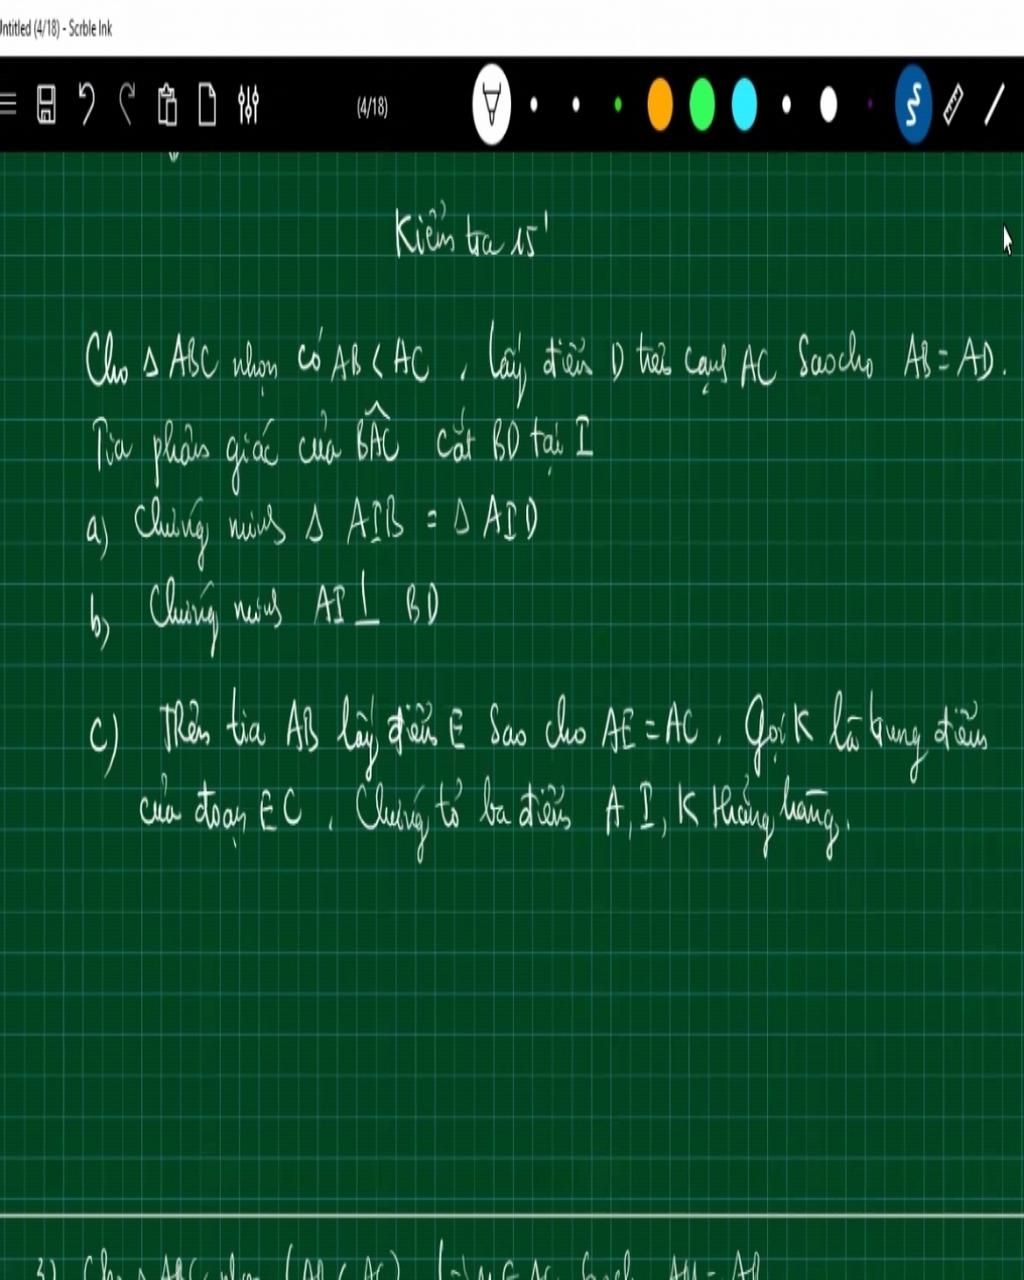 Untitled (4/18) - Scrble Ink
(4/18)
Kiểm tra 15'
Cho Δ ABC nhọn có AB < AC , lấy điểm D trên cạnh AC Sao cho AB = AD.
Tia phân giác của BÂC cắt BD tại I
a) Chứng minh Δ AIB = Δ AID
b) Chứng minh AI ⊥ BD
c) Trên tia AB lấy điểm E Sao cho AE = AC . Gọi K là trung điểm
của đoạn EC . Chứng tỏ ba điểm A, I, K thẳng hàng.
3) Cho Δ ABC nhọn (AB < AC)